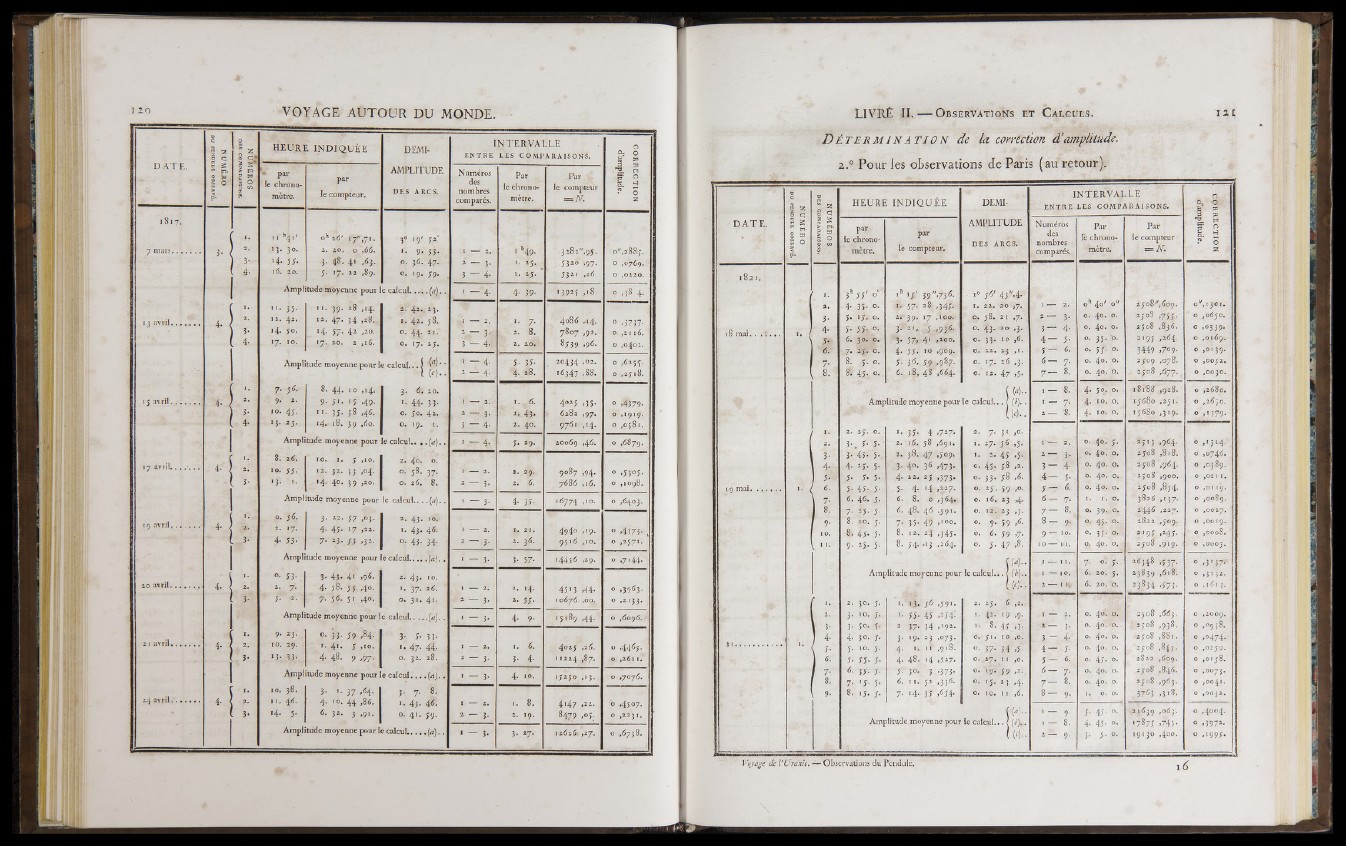 120
VOYAGE AUTOUR DU MONDE.
DATE.
NUMÉRO DU PENDULE OBSERVÉ.
NUMÉROS DES COMPARAISONS.
HEURE INDIQUÉE
par le chronomètre.
par le compteur.
DEMI-AMPLITUDE DES ARCS.
INTERVALLE ENTRE LES COMPARAISONS.
Numéros des nombres comparés.
Par le chronomètre.
Par le compteur = N.
CORRECTION d'amplitude.
1817.
7 mars....... 3. 1. 11 h 41' 0h 26' 17",71. 3° 19' 52"
2. 13. 30. 2. 20. 0 ,66. 1. 9. 53. 1 — 2. 1 h 49. 3282",95. 0",2885.
3. 14. 55. 3. 48. 41 ,63. 0. 36. 47. 2 — 3. 1. 25. 5320 ,97. 0 ,0769.
4. 16. 20. 5. 17. 22 ,89. 0. 19. 59. 3 — 4. 1. 25. 5321 ,26 0 ,0220.
Amplitude moyenne pour le calcul.....(a).. 1 — 4. 4. 39. 13925 ,18. 0 ,38 4.
13 avril...... 4. 1. 11. 35. 11. 39. 28 ,14. 2. 42. 23.
2. 12. 42. 12. 47. 34 ,28. 1. 42. 58. 1 — 2. 1. 7. 4086 ,14. 0 ,3737.
3. 14. 50. 14. 57. 42 ,20. 0. 44. 21. 2 — 3. 2. 8. 7807 ,92. 0 ,2116.
4. 17. 10. 17. 20. 2 ,16. 0. 17. 25. 3 — 4. 2. 20. 8539 ,96. 0 ,0402.
Amplitude moyenne pour le calcul... (a).. 1 — 4. 5. 35. 20434 ,02. 0 ,6255.
(c).. 2 — 4. 4. 28. 16347 ,88. 0 ,2518.
15 avril...... 4. 1. 7. 56. 8. 44. 10 ,14. 3. 6. 20.
2. 9. 2. 9. 51. 15 ,49. 1. 44. 33. 1 — 2. 1. 6. 4025 ,35. 0 ,4379.
3. 10. 45. 11. 35. 58 ,46. 0. 50. 42. 2 — 3. 1. 43. 6282 ,97. 0 ,1919.
4. 13. 25. 14. 18. 39 ,60. 0. 19. 1. 3 — 4. 2. 40. 9761 ,14. 0 ,0581.
Amplitude moyenne pour le calcul....(a).. 1 — 4. 5. 29. 20069 ,46. 0 ,6879.
17 avril...... 4. 1. 8. 26. 10. 1. 5 ,10. 2. 40. 0.
2. 10. 55. 12. 32. 33 ,04. 0. 58. 37. 1 — 2. 2. 29. 9087 ,94. 0 ,5305.
3. 13. 1. 14. 40. 39 ,20. 0. 26. 8. 2 — 3. 2. 6. 7686 ,16. 0 ,1098.
Amplitude moyenne pour le calcul....(a).. 1 — 3. 4. 35. 16774 ,10. 0 ,6403.
19 avril...... 4. 1. 0. 56. 3. 22. 57 ,03. 2. 43. 10.
2. 2. 17. 4. 45. 17 ,22. 1. 43. 46. 1 — 2. 1. 21. 4940 ,19. 0 ,4573.
3. 4. 53. 7. 23. 53 ,32. 0. 43. 34. 2 — 3. 2. 36. 9516 ,10. 0 ,2571.
Amplitude moyenne pour le calcul.....(a).. 1 — 3. 3. 57. 14456 ,29. 0 ,7144.
20 avril...... 4. 1. 0. 53. 3. 43. 41 ,96. 2. 43. 10.
2. 2. 7. 4. 58. 55 ,40. 1. 37. 26. 1 — 2. 1. 14. 4513 ,44. 0 ,3963.
3. 5. 2. 7. 56. 51 ,40. 0. 31. 41. 2 — 3. 2. 55. 10676 ,00. 0 ,2133.
Amplitude moyenne pour le calcul.....(a).. 1 — 3. 4. 9. 15189 ,44. 0 ,6096.
21 avril...... 4. 1. 9. 23. 0. 33. 59 ,84. 3. 5. 33.
2. 10. 29. 1. 41. 5 ,10. 1. 47. 44. 1 — 2. 1. 6. 4025 ,26. 0 ,4465.
3. 13. 33. 4. 48. 9 ,97. 0. 32. 28. 2 — 3. 3. 4. 11224 ,87. 0 ,2611.
Amplitude moyenne pour le calcul.....(a).. 1 — 3. 4. 10. 15250 ,13. 0 ,7076.
24 avril...... 4. 1. 10. 38. 3. 1. 37 ,64. 3. 7. 8.
2. 11. 46. 4. 10. 44 ,86. 1. 43. 46. 1 — 2. 1. 8. 4147 ,22. 0 ,4507.
3. 14. 5. 6. 32. 3 ,91. 0. 41. 59. 2 — 3. 2. 19. 8479 ,05. 0 ,2231.
Amplitude moyenne pour le calcul.....(a).. 1 — 3. 3. 27. 12626 ,27. 0 ,6738.
LIVRE II. — OBSERVATIONS ET CALCULS.
121
DÉTERMINATION de la correction d'amplitude.
2.° Pour les observations de Paris (au retour).
DATE.
NUMÉRO DU PENDULE OBSERVÉ.
NUMÉROS DES COMPARAISONS.
HEURE INDIQUÉE
par le chronomètre.
par le compteur.
DEMI-AMPLITUDE DES ARCS.
INTERVALLE ENTRE LES COMPARAISONS.
Numéros des nombres comparés.
Par le chronomètre.
Par le compteur = N.
CORRECTION d'amplitude.
1821.
18 mai........ 1. 1. 3h 55' 0" 1h 15' 59",736. 1° 56' 43",4.
2. 4. 35. 0. 1. 57. 28 ,345. 1. 22. 20 ,7. 1 — 2. 0h 40' 0" 2508",609. 0",1301.
3. 5. 15. 0. 2. 39. 17 ,100. 0. 58. 21 ,7. 2 — 3. 0. 40. 0. 2508 ,755. 0 ,0650.
4. 5. 55. 0. 3. 21. 5 ,936. 0. 43. 20 ,3. 3 — 4. 0. 40. 0. 2508 ,836. 0 ,0339.
5. 6. 30. 0. 3. 57. 41 ,200. 0. 33. 10 ,6. 4 — 5. 0. 35. 0. 2195 ,264. 0 ,0169.
6. 7. 25. 0. 4. 55. 10 ,909. 0. 22. 23 ,1. 5 — 6. 0. 55. 0. 3449 ,709. 0 ,0139.
7. 8. 5. 0. 5. 36. 59 ,987. 0. 17. 16 ,3. 6 — 7. 0. 40. 0. 2509 ,078. 0 ,0052.
8. 8. 45. 0. 6. 18. 48 ,664. 0. 12. 47 ,5. 7 — 8. 0. 40. 0. 2508 ,677. 0 ,0030.
Amplitude moyenne pour le calcul... (a).. 1 — 8. 4. 50. 0. 18188 ,928. 0 ,2680.
(b).. 1 — 7. 4. 10. 0. 15680 ,251. 0 ,2650.
(c).. 2 — 8. 4. 10. 0. 15680 ,319. 0 ,1379.
19 mai....... 1. 1. 2. 25. 0. 1. 35. 4 ,727. 2. 7. 31 ,0.
2. 3. 5. 5. 2. 16. 58 ,691. 1. 27. 56 ,5. 1 — 2. 0. 40. 5. 2513 ,964. 0 ,1514.
3. 3. 45. 5. 2. 58. 47 ,509. 1. 2. 45 ,5. 2 — 3. 0. 40. 0. 2508 ,818. 0 ,0746.
4. 4. 25. 5. 3. 40. 36 ,473. 0. 45. 58 ,2. 3 — 4. 0. 40. 0. 2508 ,964. 0 ,0389.
5. 5. 5. 5. 4. 22. 25 ,373. 0. 33. 58 ,6. 4 — 5. 0. 40. 0. 2508 ,900. 0 ,0211.
6. 5. 45. 5. 5. 4. 14 ,227. 0. 25. 59 ,0. 5 — 6. 0. 40. 0. 2508 ,854. 0 ,0119.
7. 6. 46. 5. 6. 8. 0 ,364. 0. 16. 23 ,4. 6 — 7. 1. 1. 0. 3826 ,137. 0 ,0089.
8. 7. 25. 5. 6. 48. 46 ,591. 0. 12. 23 ,3. 7 — 8. 0. 39. 0. 2446 ,227. 0 ,0027.
9. 8. 10. 5. 7. 35. 49 ,100. 0. 9. 59 ,6. 8 — 9. 0. 45. 0. 2822 ,509. 0 ,0019.
10. 8. 45. 5. 8. 12. 24 ,345. 0. 6. 59 ,7. 9 — 10. 0. 35. 0. 2195 ,245. 0 ,0008.
11. 9. 25. 5. 8. 54. 13 ,264. 0. 5. 47 ,8. 10 — 11. 0. 40. 0. 2508 ,919. 0 ,0005.
Amplitude moyenne pour le calcul... (a).. 1 — 11. 7. 0. 5. 26348 ,537. 0 ,3137.
(b).. 1 — 10. 6. 20. 5. 23839 ,618. 0 ,3132.
(c).. 2 — 11. 6. 20. 0. 23834 ,573. 0 ,1613.
21........... 1. 1. 2. 30. 5. 1. 13. 56 ,591. 2. 25. 6 ,2.
2. 3. 10. 5. 1. 55. 45 ,254. 1. 41. 19 ,9. 1 — 2. 0. 40. 0. 2508 ,663. 0 ,2009.
3. 3. 50. 5. 2. 37. 34 ,192. 1. 8. 45 ,3. 2 — 3. 0. 40. 0. 2508 ,938. 0 ,0938.
4. 4. 30. 5. 3. 19. 23 ,073. 0. 51. 10 ,0. 3 — 4. 0. 40. 0. 2508 ,881. 0 ,0474.
5. 5. 10. 5. 4. 1. 11 ,918. 0. 37. 34 ,5. 4 — 5. 0. 40. 0. 2508 ,845. 0 ,0259.
6. 5. 55. 5. 4. 48. 14 ,527. 0. 27. 11 ,0. 5 — 6. 0. 45. 0. 2822 ,609. 0 ,0158.
7. 6. 35. 5. 5. 30. 3 ,373. 0. 19. 59 ,2. 6 — 7. 0. 40. 0. 2508 ,846. 0 ,0073.
8. 7. 15. 5. 6. 11. 52 ,336. 0. 15. 23 ,4. 7 — 8. 0. 40. 0. 2508 ,963. 0 ,0041.
9. 8. 15. 5. 7. 14. 35 ,654. 0. 10. 11 ,6. 8 — 9. 1. 0. 0. 3763 ,318. 0 ,0032.
Amplitude moyenne pour le calcul... (a).. 1 — 9. 5. 45. 0. 21639 ,063. 0 ,4004.
(b).. 1 — 8. 4. 45. 0. 17875 ,745. 0 ,3972.
(c).. 2 — 9. 5. 5. 0. 19130 ,400. 0 ,1995.
Voyage de l'Uranie. — Observations du Pendule.
16